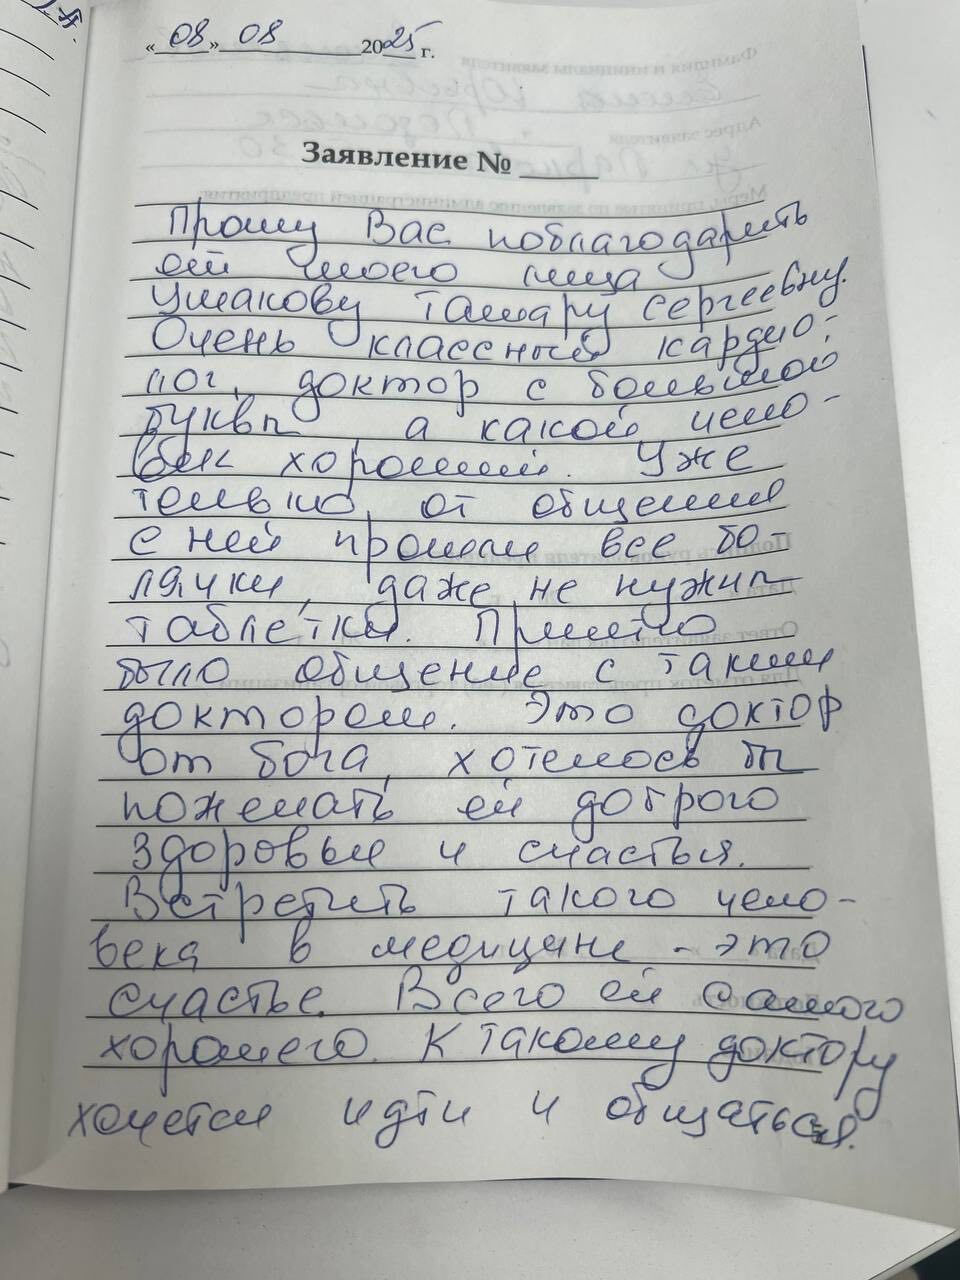 « 08 » 08 2025 г.
Заявление №
Прошу Вас поблагодарить
от моего лица
Ушакову Тамару Сергеевну.
Очень классный кардио-
лог, доктор с большой
буквы а какой чело-
век хороший. Уже
только от общения
с ней прошли все бо
лячки, даже не нужны
таблетки. Приятно
было общение с таким
доктором. Это доктор
от бога, хотелось бы
пожелать ей доброго
здоровья и счастья.
Встретить такого чело-
века в медицине - это
счастье. Всего ей самого
хорошего. К такому доктору
хочется идти и общаться.